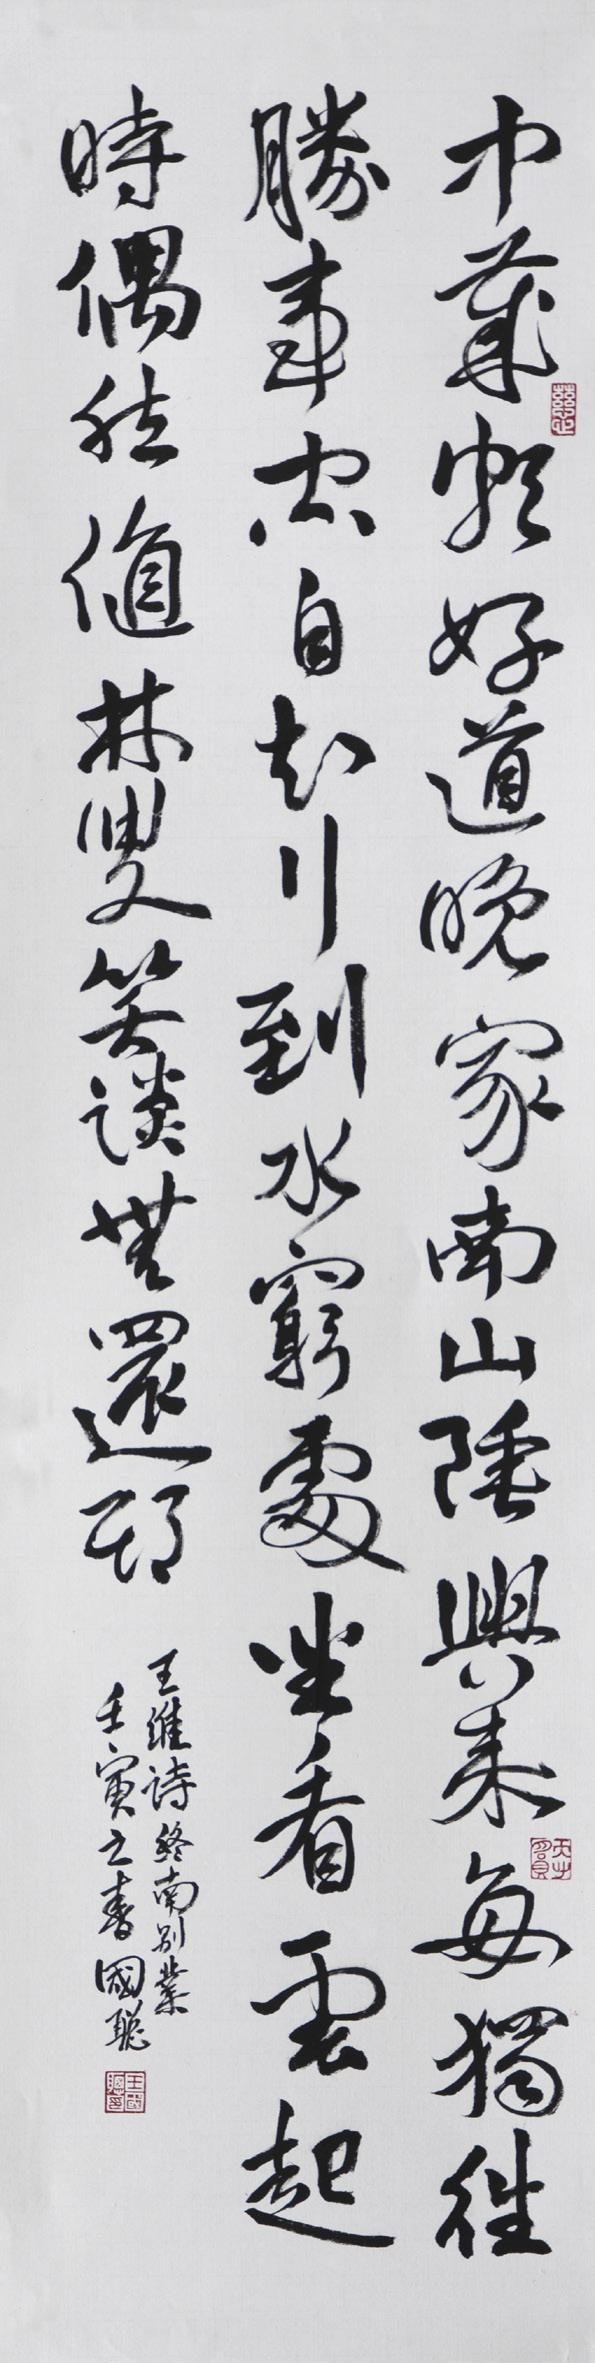 中歲頗好道晚家南山陲興來每獨往
勝事空自知行到水窮處坐看雲起
時偶然值林叟笑談無還期
王維詩終南別業
壬寅之春國聰